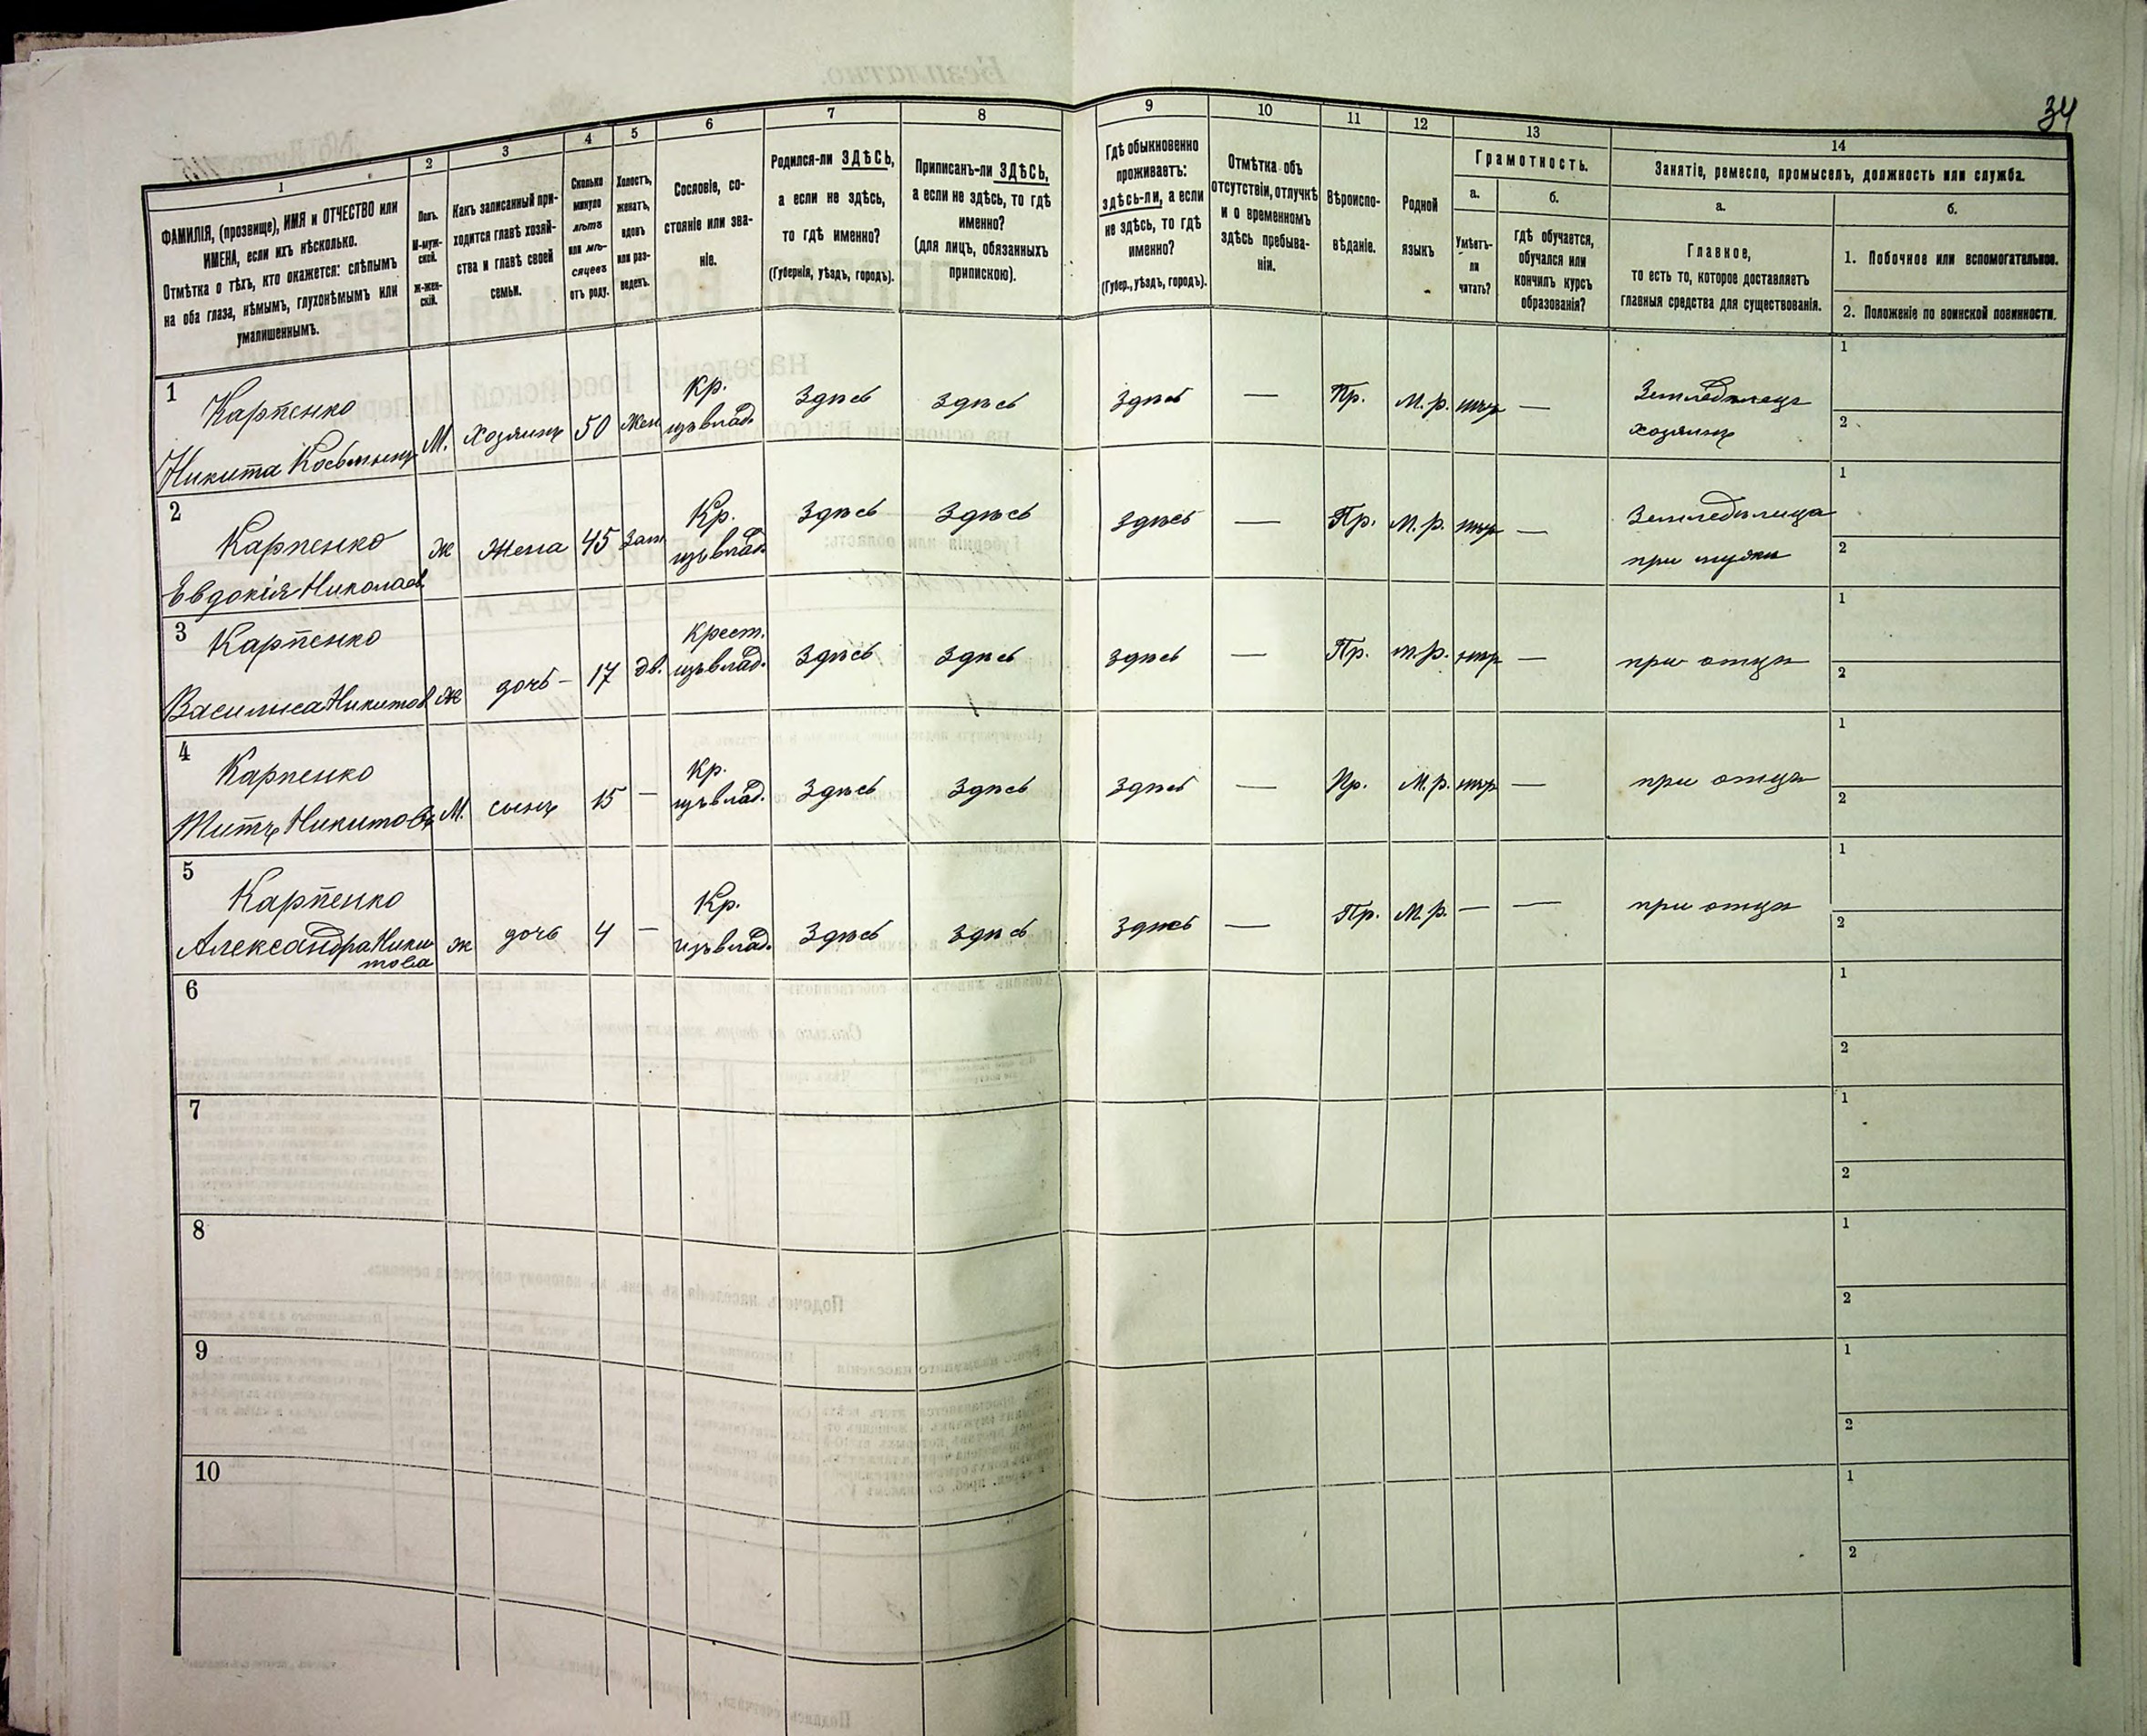 34
1 2 3 4 5 6 7 8 9 10 11 12 13 14
ФАМИЛІЯ, (прозвище), ИМЯ и ОТЧЕСТВО или
ИМЕНА, если ихъ нѣсколько.
Отмѣтка о тѣхъ, кто окажется: слѣпымъ
на оба глаза, нѣмымъ, глухонѣмымъ или
умалишеннымъ.
Полъ.
М-муж-
ской.
Ж-жен-
скій.
Какъ записанный при-
ходится главѣ хозяй-
ства и главѣ своей
семьи.
Сколько
минуло
лѣтъ
или мѣ-
сяцевъ
отъ роду.
Холостъ,
женатъ,
вдовъ
или раз-
веденъ.
Сословіе, со-
стояніе или зва-
ніе.
Родился-ли ЗДѢСЬ,
а если не здѣсь,
то гдѣ именно?
(Губернія, уѣздъ, городъ).
Приписанъ-ли ЗДѢСЬ,
а если не здѣсь, то гдѣ
именно?
(для лицъ, обязанныхъ
припискою).
Гдѣ обыкновенно
проживаетъ:
здѣсь-ли, а если
не здѣсь, то гдѣ
именно?
(Губер., уѣздъ, городъ).
Отмѣтка объ
отсутствіи, отлучкѣ
и о временномъ
здѣсь пребыва-
ніи.
Вѣроиспо-
вѣданіе.
Родной
языкъ
Грамотность.
а.
Умѣетъ-
ли
читать?
б.
Гдѣ обучается,
обучался или
кончилъ курсъ
образованія?
Занятіе, ремесло, промыселъ, должность или служба.
а.
Главное,
то есть то, которое доставляетъ
главныя средства для существованія.
б.
1. Побочное или вспомогательное.
2. Положеніе по воинской повинности.
1 Карпенко
Никита Козьминъ М. хозяинъ 50 Жен Кр. изъ влад. Здѣсь Здѣсь Здѣсь — Пр. М. р. нѣтъ — Земледѣлецъ хозяинъ 1 2
2 Карпенко
Евдокія Николаев Ж Жена 45 Зам Кр. изъ влад. Здѣсь Здѣсь Здѣсь — Пр. М. р. нѣтъ — Земледѣлица при мужѣ 1 2
3 Карпенко
Василиса Никитов Ж дочь - 17 дв. Крест. изъ влад. Здѣсь Здѣсь Здѣсь — Пр. м. р. нѣтъ — при отцѣ 1 2
4 Карпенко
Титъ Никитовъ М. сынъ 15 — Кр. изъ влад. Здѣсь Здѣсь Здѣсь — Пр. М. р. нѣтъ — при отцѣ 1 2
5 Карпенко
Александра Ники
това Ж дочь 4 — Кр. изъ влад. Здѣсь Здѣсь Здѣсь — Пр. М. р. — — при отцѣ 1 2
6 1 2
7 1 2
8 1 2
9 1 2
10 1 2